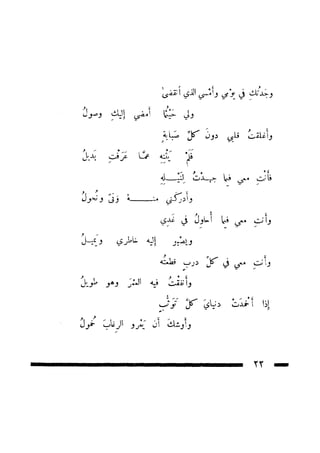 وجدتُكِ في يومي وأمسي الذي انقضى
ولي حيثُما أمضي إليكِ وصولُ
وأغلقتُ قلبي دونَ كلِّ صَبابةٍ
فلمْ يَثنِهِ عمّا عَرَفتِ بَديلُ
فأنتِ معي فيما جهدتُ لنيـلهِ
وأدركني منـه ونًى ونُحولُ
وأنتِ معي فيما أُحاولُ في غدي
ويصبو إليه خاطري ويميـلُ
وأنتِ معي في كلِّ دربٍ قطعتُه
وأنفقتُ فيه العمرَ وهو طويلُ
إذا أخمدَتْ دنيايَ كلَّ توثُّبٍ
وأوشكَ أن يَعرو الرغابَ خمولُ
٢٣